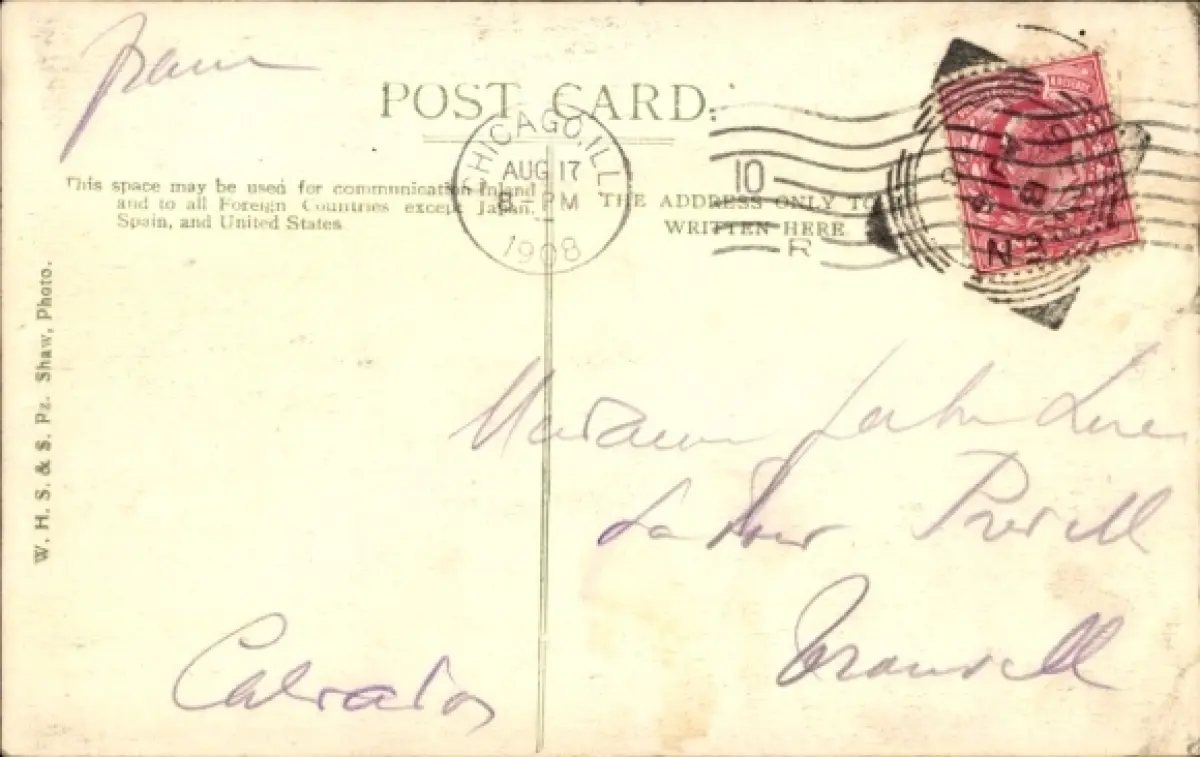 POST CARD.
CHICAGO, ILL.
AUG 17
8 - PM
1908
10
R
This space may be used for communication Inland
and to all Foreign Countries except Japan,
Spain, and United States
THE ADDRESS ONLY TO
WRITTEN HERE
W. H. S. & S. Pz. Shaw, Photo.
Madame John
La
Calvados